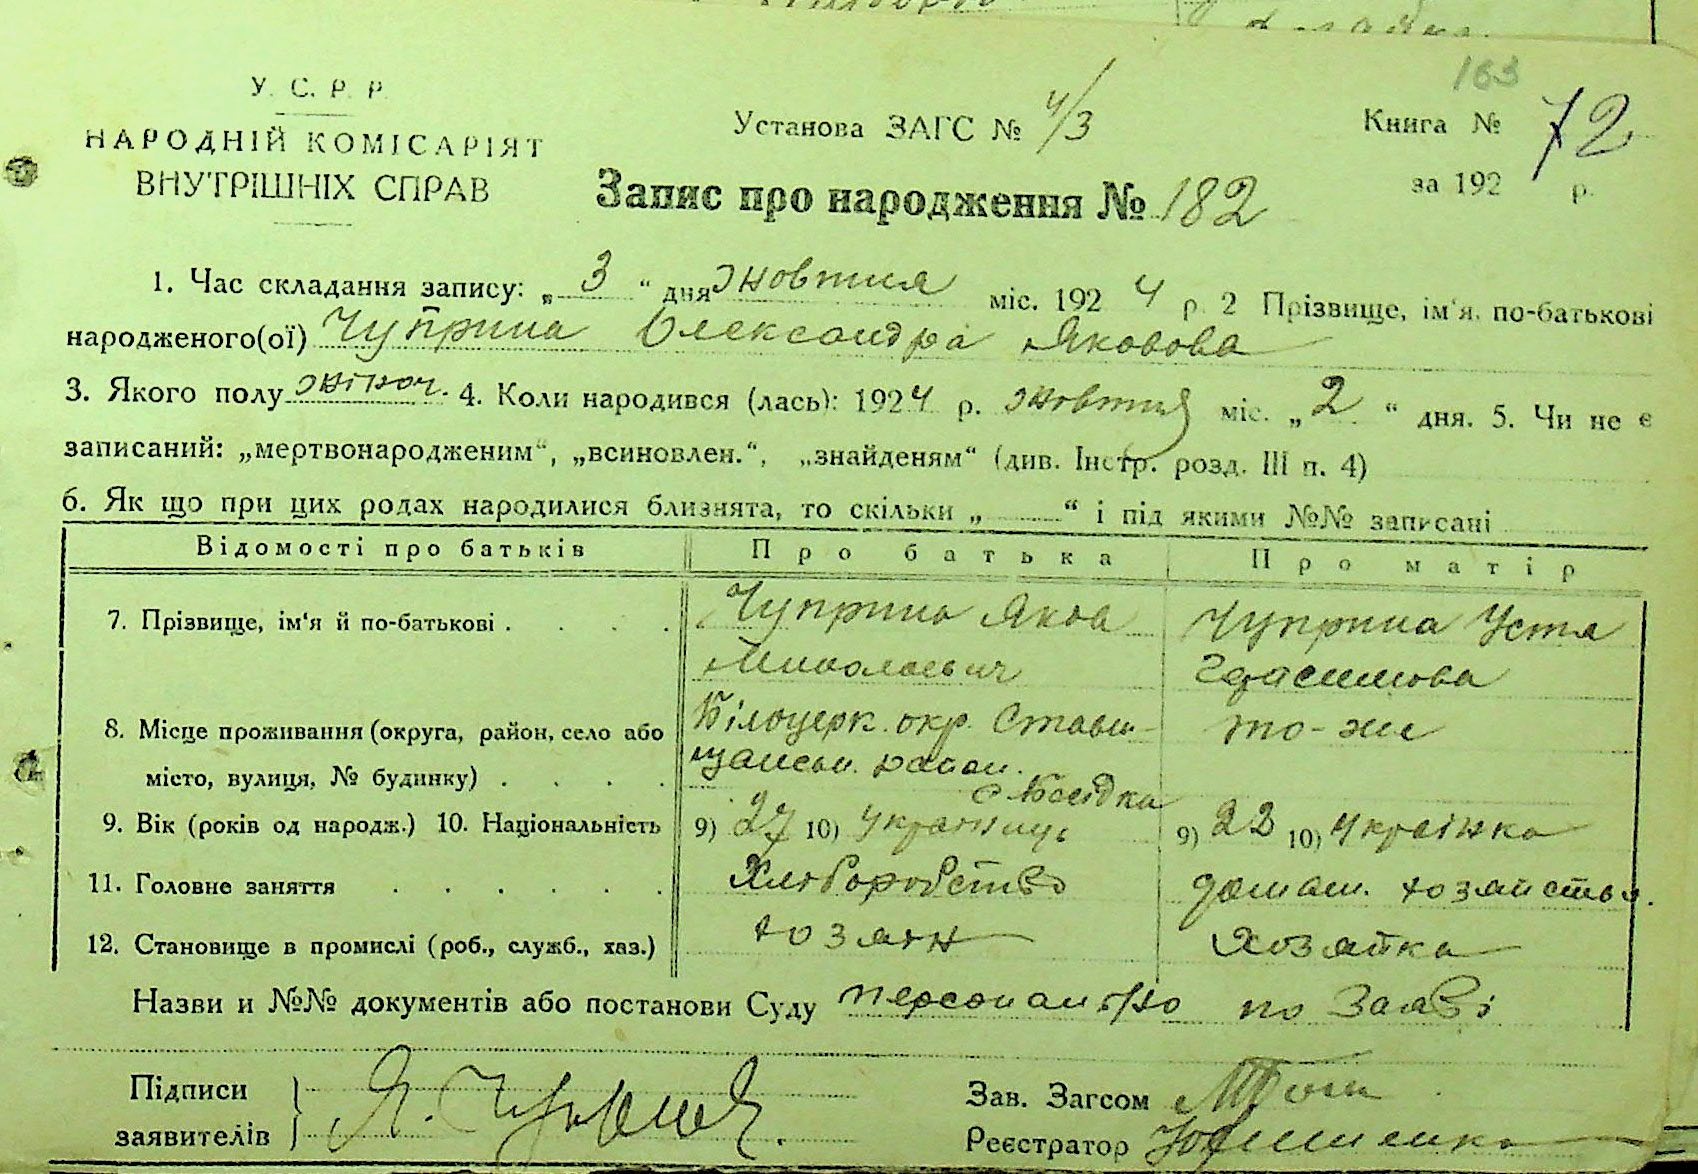 163
У. С. Р. Р.
НАРОДНІЙ КОМІСАРІЯТ
ВНУТРІШНІХ СПРАВ
Установа ЗАГС № 4/3
Книга № 72
за 192 р.
Запис про народження № 182
1. Час складання запису: „ 3 “ дня жовтня міс. 192 4 р. 2 Прізвище, ім'я, по-батькові
народженого(ої) Чуприна Олександра Яковова
3. Якого полу жіноч. 4. Коли народився (лась): 1924 р. жовтня міс. „ 2 “ дня. 5. Чи не є
записаний: „мертвонародженим“, „всиновлен.“, „знайденям“ (див. Інстр. розд. III п. 4)
6. Як що при цих родах народилися близнята, то скільки „ “ і під якими №№ записані
Відомості про батьків Про батька Про матір
7. Прізвище, ім'я й по-батькові . . . . Чуприна Яков Чуприна Устя
Миколаевич Герасимова
8. Місце проживання (округа, район, село або Білоцерк. окр. Стави- то-же
місто, вулиця, № будинку) . . . . щанськ. район.
с Бесідка
9. Вік (років од народж.) 10. Національність 9) 27 10) українець 9) 22 10) українка
11. Головне заняття . . . . . . Хлиборобство домаш. хозайство.
12. Становище в промислі (роб., служб., хаз.) хозяїн Хозяйка
Назви и №№ документів або постанови Суду по Заяві
Підписи
заявителів
Я. Чуприна
Зав. Загсом
Реєстратор